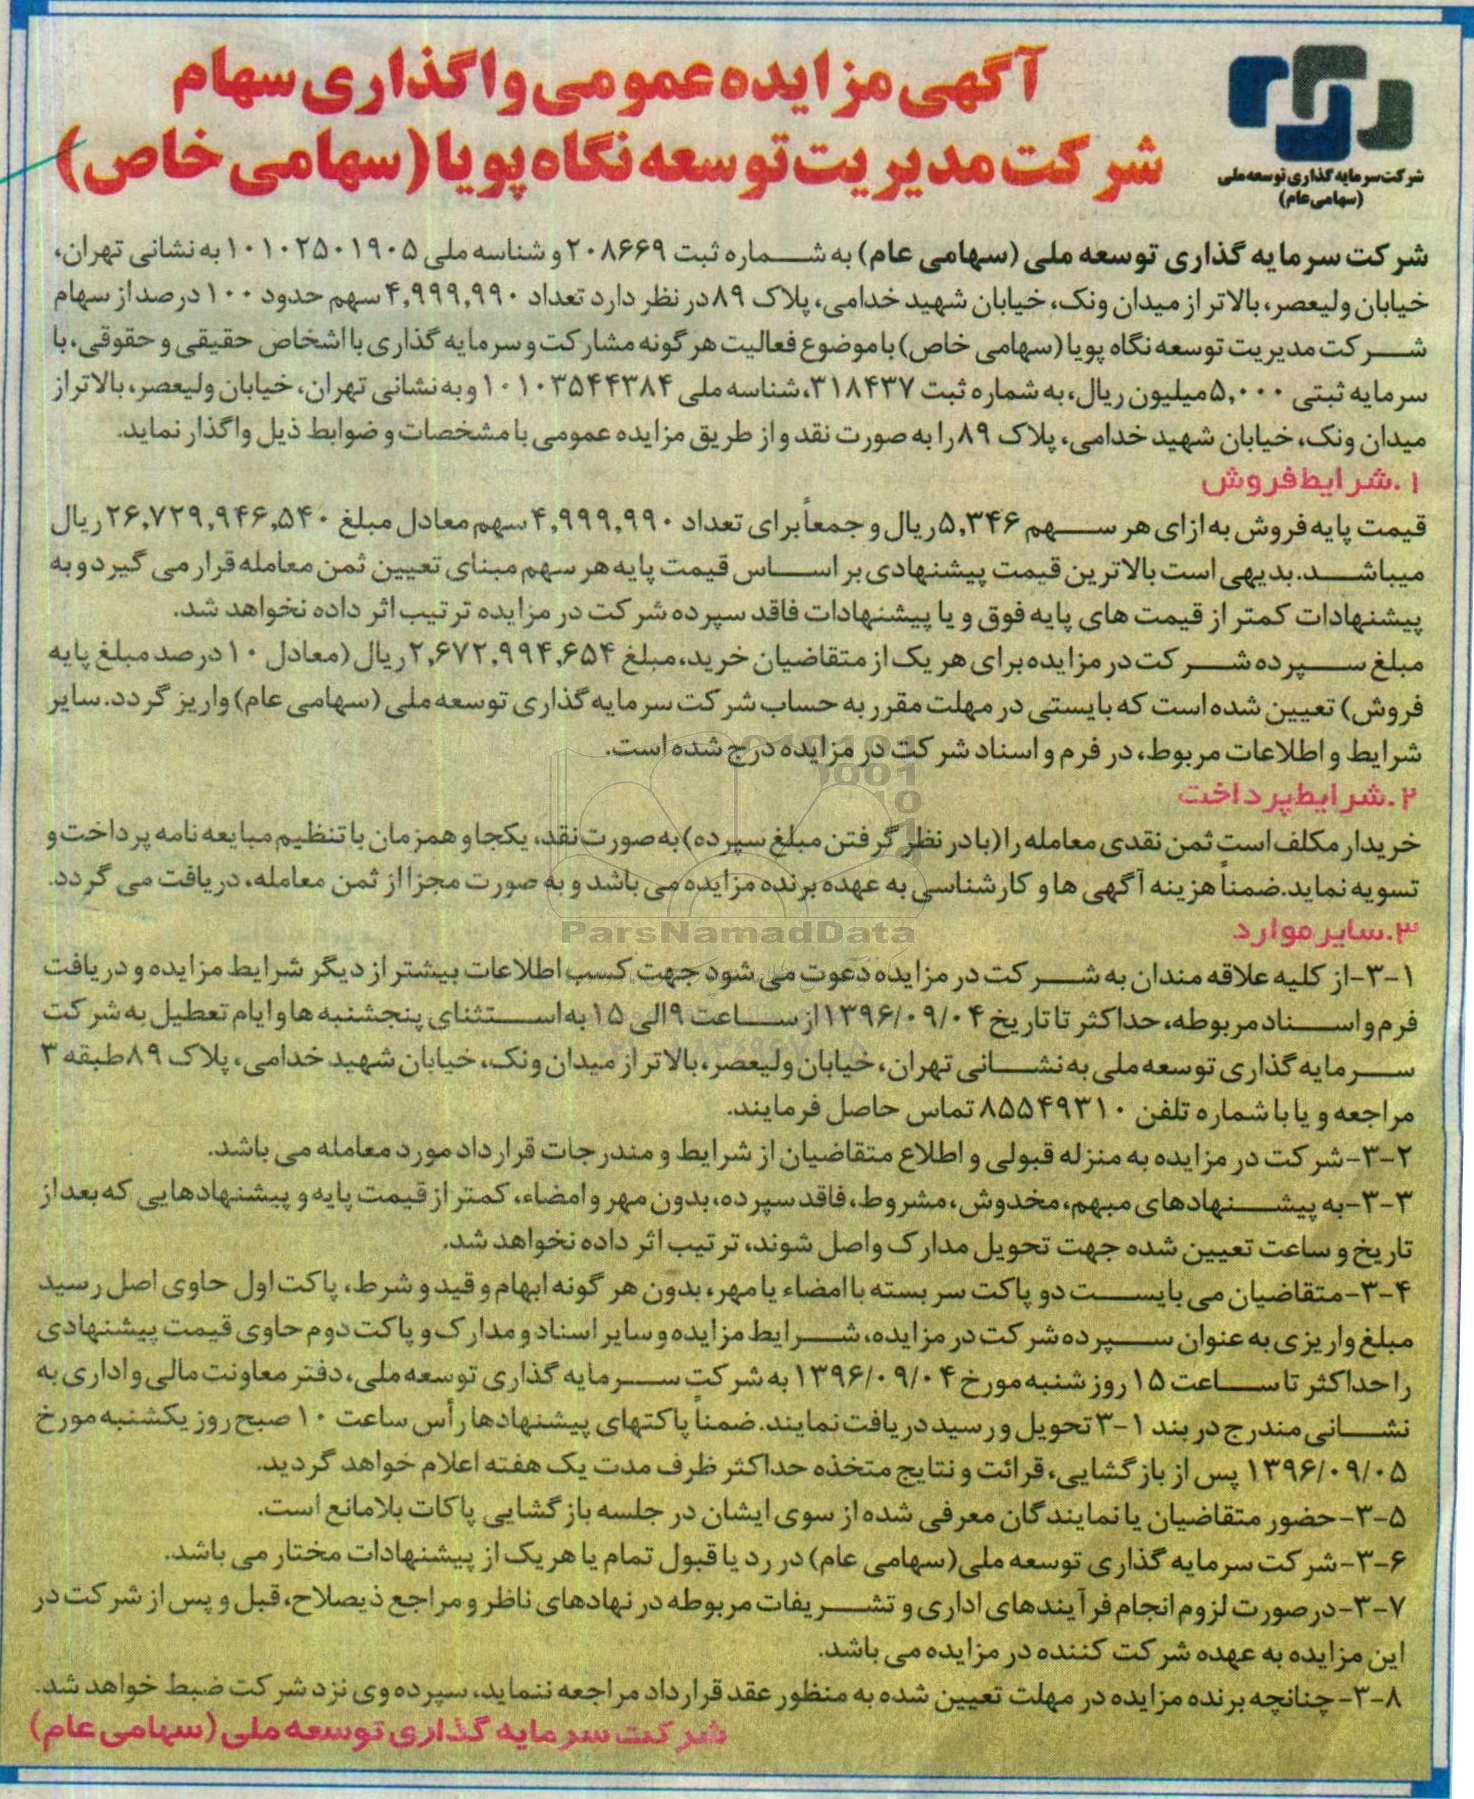 آگهی مزایده عمومی واگذاری سهام
شرکت مدیریت توسعه نگاه پویا (سهامی خاص)
شرکت سرمایه گذاری توسعه ملی
(سهامی عام)
شرکت سرمایه گذاری توسعه ملی (سهامی عام) به شماره ثبت ۲۰۸۶۶۹ و شناسه ملی ۱۰۱۰۲۵۰۱۹۰۵ به نشانی تهران،
خیابان ولیعصر، بالاتر از میدان ونک، خیابان شهید خدامی، پلاک ۸۹ در نظر دارد تعداد ۴,۹۹۹,۹۹۰ سهم حدود ۱۰۰ درصد از سهام
شرکت مدیریت توسعه نگاه پویا (سهامی خاص) با موضوع فعالیت هرگونه مشارکت و سرمایه گذاری با اشخاص حقیقی و حقوقی، با
سرمایه ثبتی ۵,۰۰۰ میلیون ریال، به شماره ثبت ۳۱۸۴۳۷، شناسه ملی ۱۰۱۰۳۵۴۴۳۸۴ و به نشانی تهران، خیابان ولیعصر، بالاتر از
میدان ونک، خیابان شهید خدامی، پلاک ۸۹ را به صورت نقد و از طریق مزایده عمومی با مشخصات و ضوابط ذیل واگذار نماید.
۱.شرایط فروش
قیمت پایه فروش به ازای هر سهم ۵,۳۴۶ ریال و جمعاً برای تعداد ۴,۹۹۹,۹۹۰ سهم معادل مبلغ ۲۶,۷۲۹,۹۴۶,۵۴۰ ریال
میباشد. بدیهی است بالاترین قیمت پیشنهادی بر اساس قیمت پایه هر سهم مبنای تعیین ثمن معامله قرار می گیرد و به
پیشنهادات کمتر از قیمت های پایه فوق و یا پیشنهادات فاقد سپرده شرکت در مزایده ترتیب اثر داده نخواهد شد.
مبلغ سپرده شرکت در مزایده برای هر یک از متقاضیان خرید، مبلغ ۲,۶۷۲,۹۹۴,۶۵۴ ریال (معادل ۱۰ درصد مبلغ پایه
فروش) تعیین شده است که بایستی در مهلت مقرر به حساب شرکت سرمایه گذاری توسعه ملی (سهامی عام) واریز گردد. سایر
شرایط و اطلاعات مربوط، در فرم و اسناد شرکت در مزایده درج شده است.
۲.شرایط پرداخت
خریدار مکلف است ثمن نقدی معامله را (با در نظر گرفتن مبلغ سپرده) به صورت نقد، یکجا و همزمان با تنظیم مبایعه نامه پرداخت و
تسویه نماید. ضمناً هزینه آگهی ها و کارشناسی به عهده برنده مزایده می باشد و به صورت مجزا از ثمن معامله، دریافت می گردد.
ParsNamadData
۳.سایر موارد
۳-۱-از کلیه علاقه مندان به شرکت در مزایده دعوت می شود جهت کسب اطلاعات بیشتر از دیگر شرایط مزایده و دریافت
فرم و اسناد مربوطه، حداکثر تا تاریخ ۱۳۹۶/۰۹/۰۴ از ساعت ۹ الی ۱۵ به استثنای پنجشنبه ها و ایام تعطیل به شرکت
سرمایه گذاری توسعه ملی به نشانی تهران، خیابان ولیعصر، بالاتر از میدان ونک، خیابان شهید خدامی، پلاک ۸۹ طبقه ۳
مراجعه و یا با شماره تلفن ۸۵۵۴۹۳۱۰ تماس حاصل فرمایند.
۳-۲-شرکت در مزایده به منزله قبولی و اطلاع متقاضیان از شرایط و مندرجات قرارداد مورد معامله می باشد.
۳-۳-به پیشنهادهای مبهم، مخدوش، مشروط، فاقد سپرده، بدون مهر و امضاء، کمتر از قیمت پایه و پیشنهادهایی که بعد از
تاریخ و ساعت تعیین شده جهت تحویل مدارک واصل شوند، ترتیب اثر داده نخواهد شد.
۳-۴-متقاضیان می بایست دو پاکت سر بسته با امضاء یا مهر، بدون هر گونه ابهام و قید و شرط، پاکت اول حاوی اصل رسید
مبلغ واریزی به عنوان سپرده شرکت در مزایده، شرایط مزایده و سایر اسناد و مدارک و پاکت دوم حاوی قیمت پیشنهادی
را حداکثر تا ساعت ۱۵ روز شنبه مورخ ۱۳۹۶/۰۹/۰۴ به شرکت سرمایه گذاری توسعه ملی، دفتر معاونت مالی و اداری به
نشانی مندرج در بند ۳-۱ تحویل و رسید دریافت نمایند. ضمناً پاکتهای پیشنهادها رأس ساعت ۱۰ صبح روز یکشنبه مورخ
۱۳۹۶/۰۹/۰۵ پس از بازگشایی، قرائت و نتایج متخذه حداکثر ظرف مدت یک هفته اعلام خواهد گردید.
۳-۵-حضور متقاضیان یا نمایندگان معرفی شده از سوی ایشان در جلسه بازگشایی پاکات بلامانع است.
۳-۶-شرکت سرمایه گذاری توسعه ملی (سهامی عام) در رد یا قبول تمام یا هر یک از پیشنهادات مختار می باشد.
۳-۷-درصورت لزوم انجام فرآیندهای اداری و تشریفات مربوطه در نهادهای ناظر و مراجع ذیصلاح، قبل و پس از شرکت در
این مزایده به عهده شرکت کننده در مزایده می باشد.
۳-۸-چنانچه برنده مزایده در مهلت تعیین شده به منظور عقد قرارداد مراجعه ننماید، سپرده وی نزد شرکت ضبط خواهد شد.
شرکت سرمایه گذاری توسعه ملی (سهامی عام)